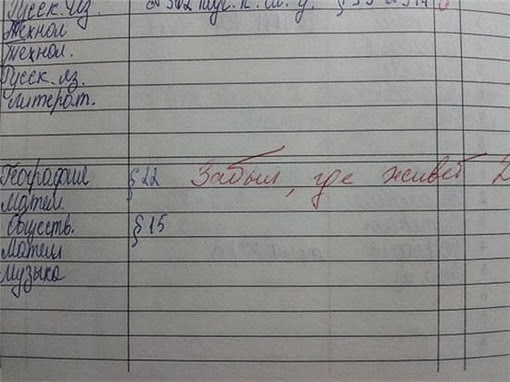 Русск. яз.
Технол
Технол.
Русск. яз.
Литерат.
География § 22 Забыл, где живет 2
Матем
Обществ. § 15
Матем
Музыка